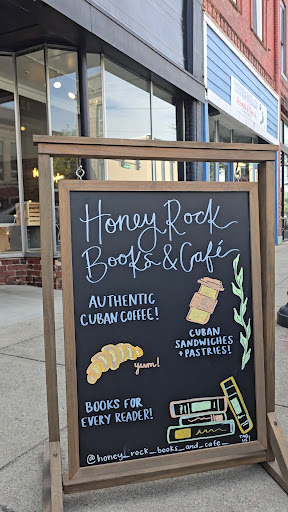 Honey Rock
Books & Café
AUTHENTIC
CUBAN COFFEE!
CUBAN
SANDWICHES
+ PASTRIES!
yum!
BOOKS FOR
EVERY READER!
@honey_rock_books_and_cafe_